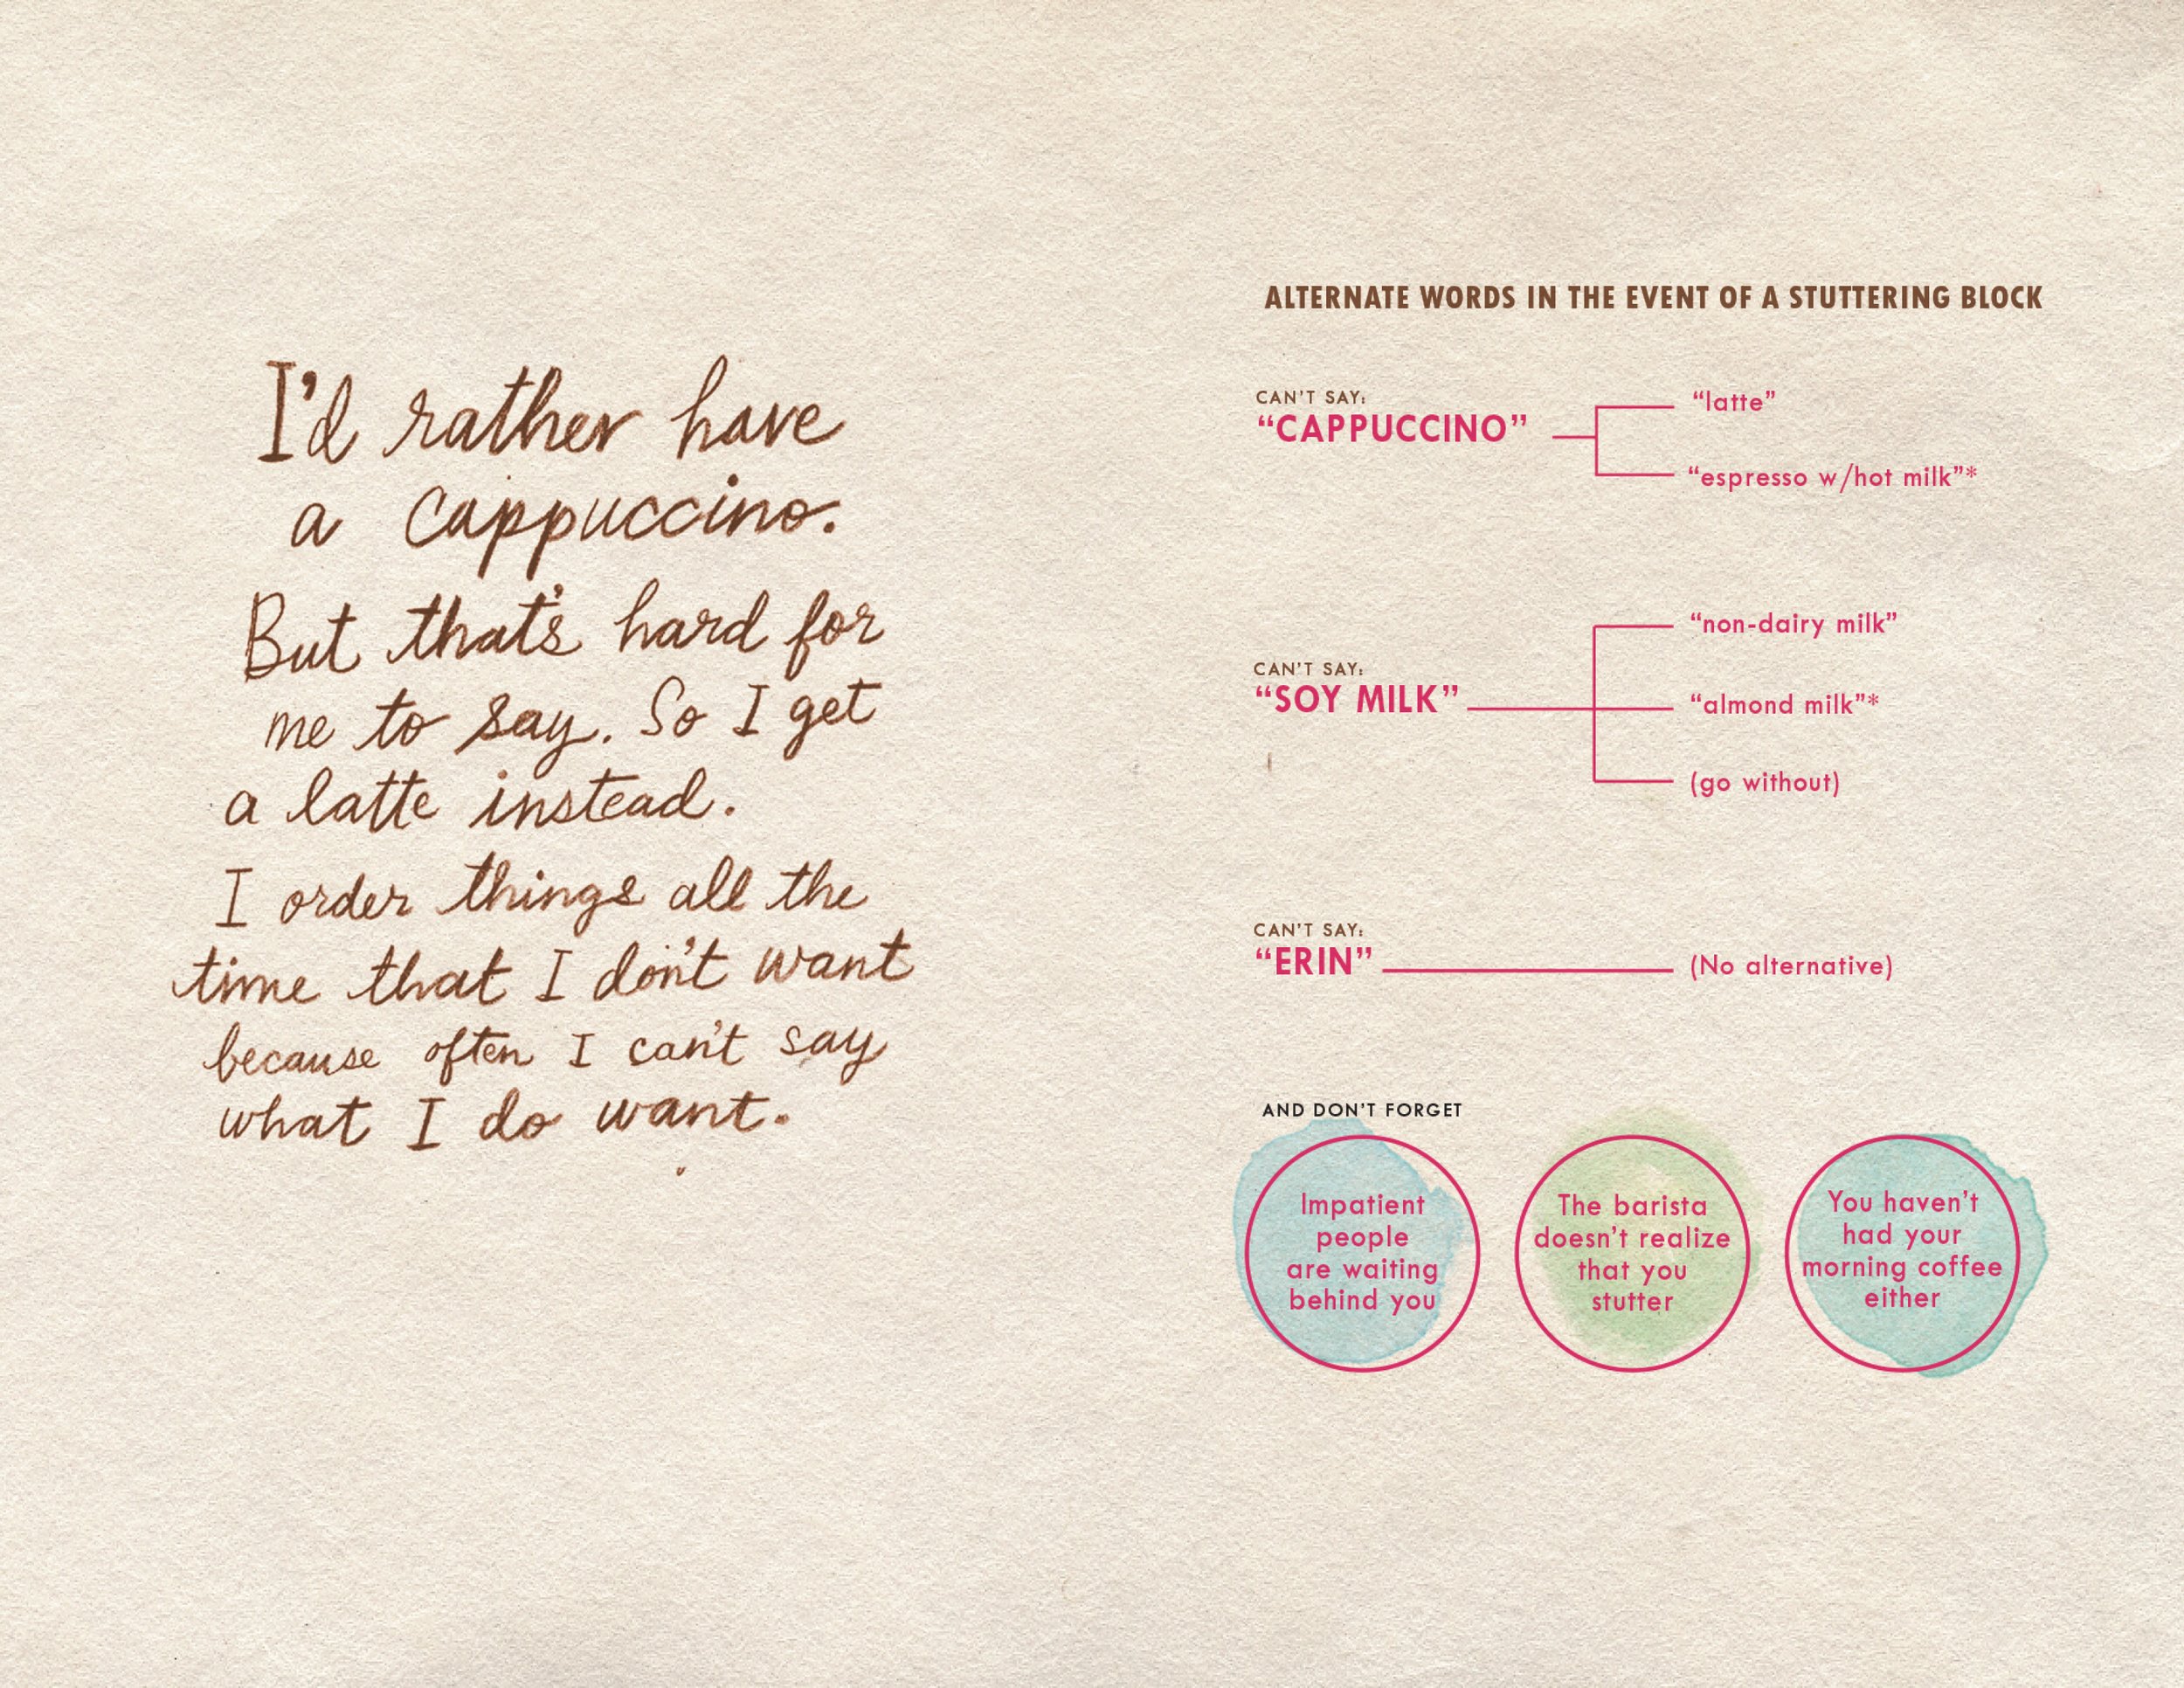 I'd rather have
a cappuccino.
But that's hard for
me to say. So I get
a latte instead.
I order things all the
time that I don't want
because often I can't say
what I do want.
ALTERNATE WORDS IN THE EVENT OF A STUTTERING BLOCK
CAN'T SAY:
“CAPPUCCINO”
“latte”
“espresso w/hot milk”*
CAN'T SAY:
“SOY MILK”
“non-dairy milk”
“almond milk”*
(go without)
CAN'T SAY:
“ERIN”
(No alternative)
AND DON'T FORGET
Impatient
people
are waiting
behind you
The barista
doesn't realize
that you
stutter
You haven't
had your
morning coffee
either